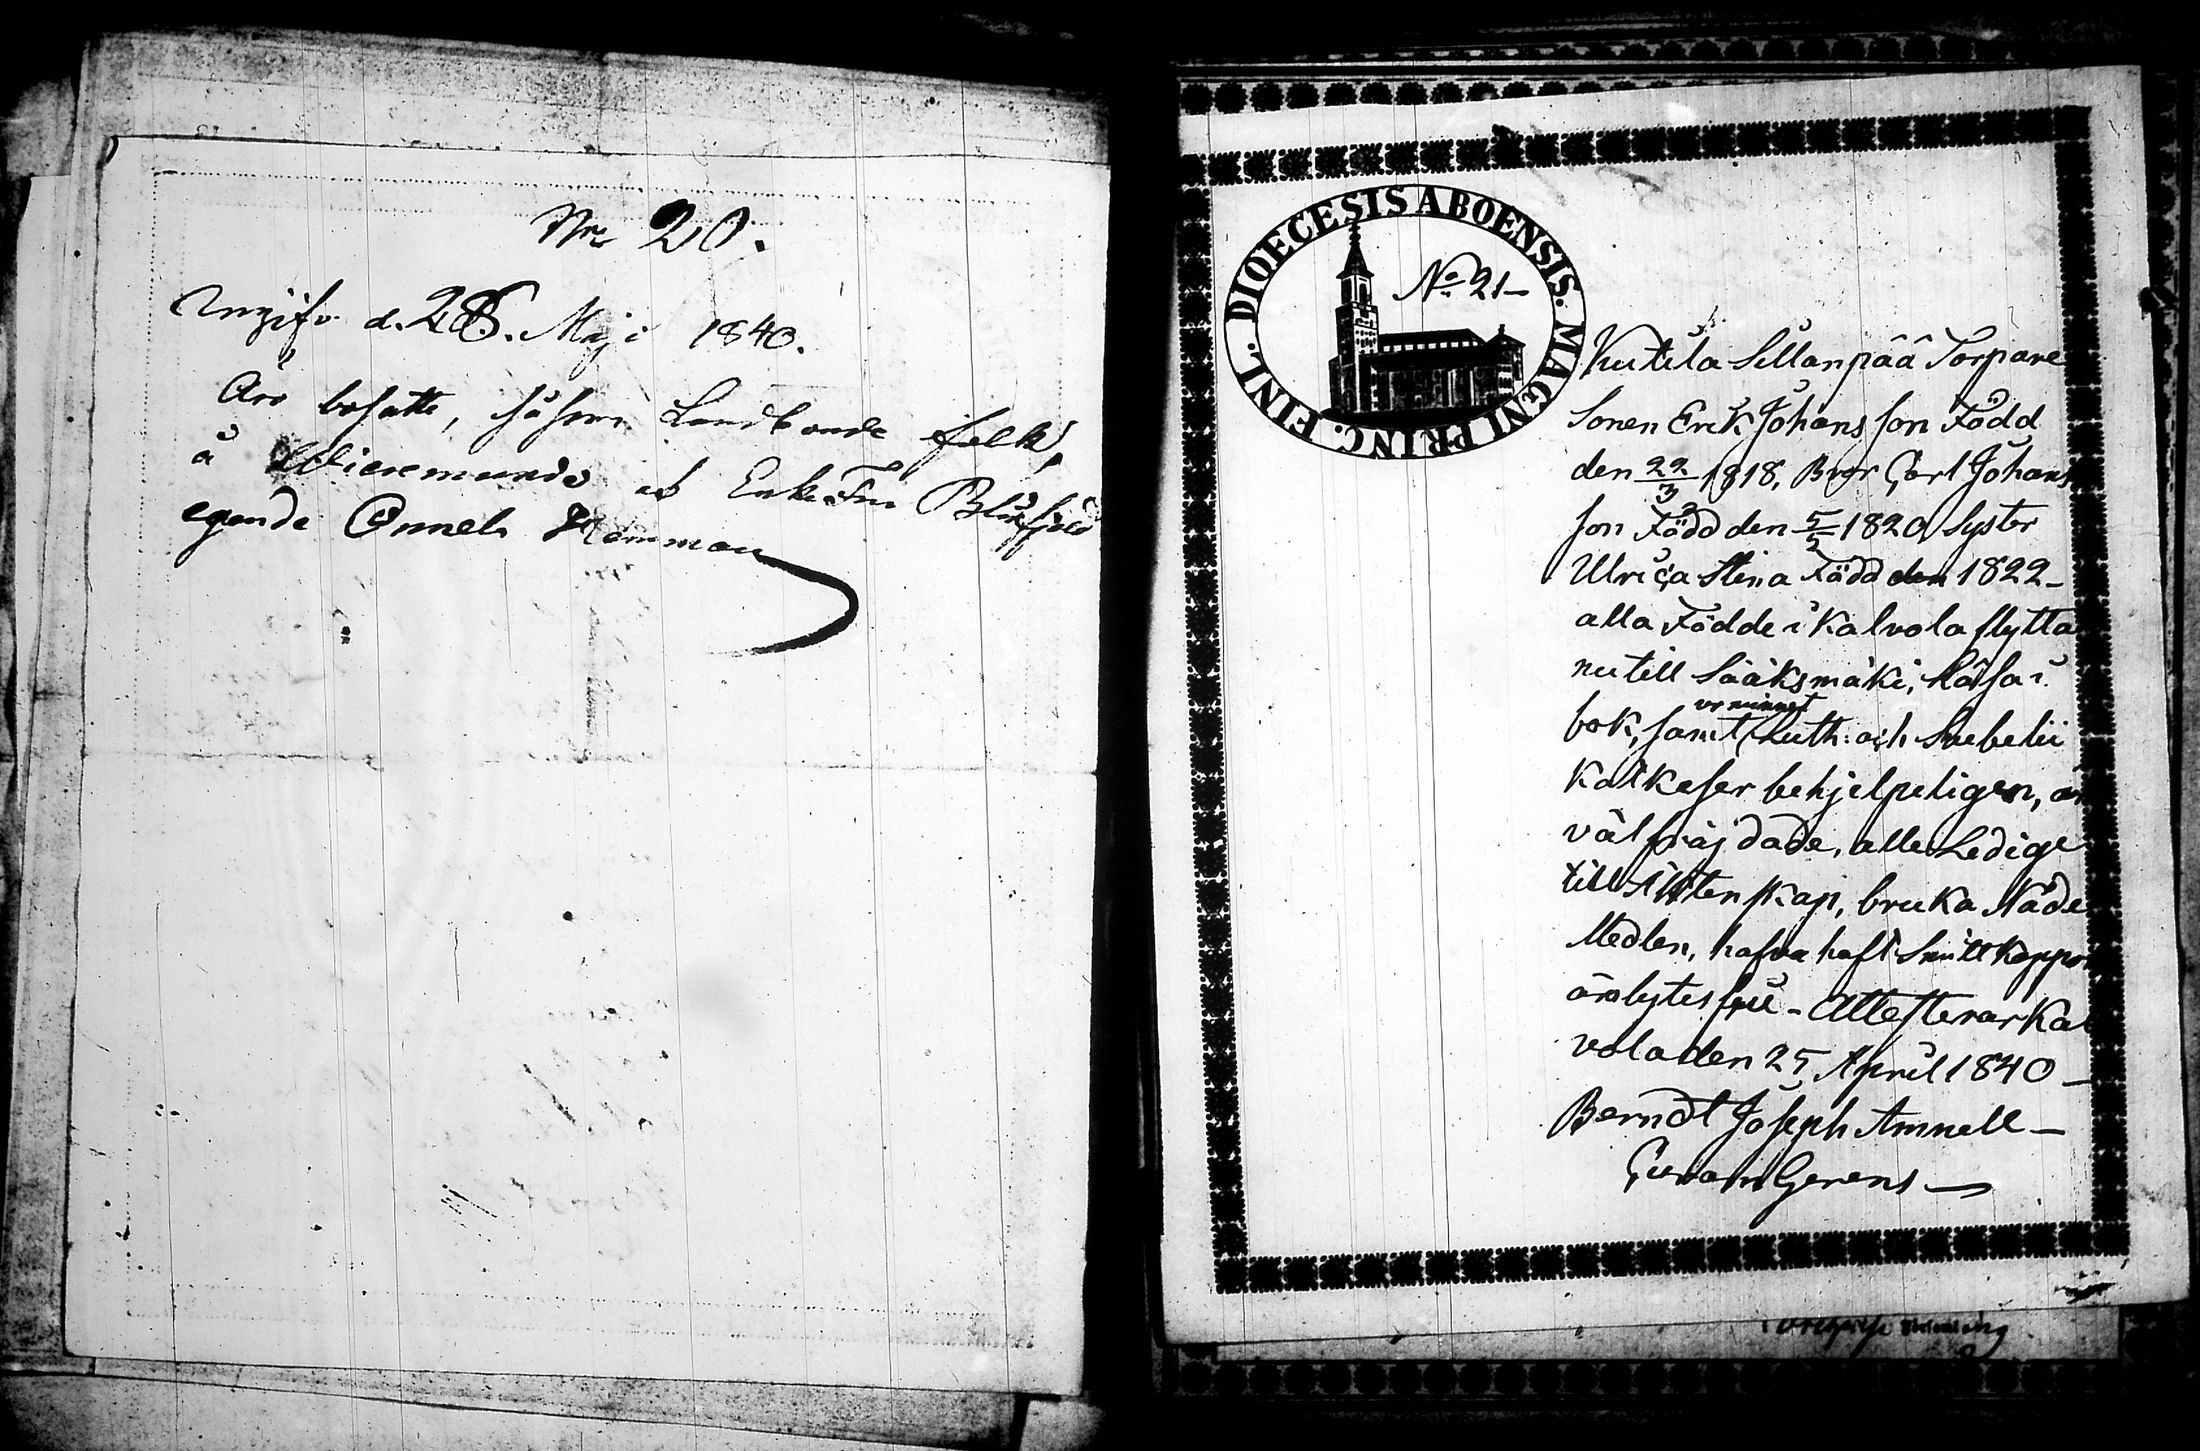 Nr 20.
Ingifv. d. 28. Maji 1840.
Äro bosatte, såsom Landbonde folk,
å Wieremunde af Enke Fru Blåfjeld
egande Onnela Hemman
DIOECESIS ABOENSIS. MAGNI PRINC. FINL.
No 21-
Kutila Sillanpää Torpare
Sonen Erik Johans son Född
den 22/3 1818, Bror Carl Johans
son Född den 5/5 1820 Syster
Ulrica Stina Född den 1822-
alla Födde i Kalvola flytta
nu till Sääksmäki, läsa i
bok, samt ur minnet Luth: och Svebelii
Katkeser behjelpeligen, är
välfräjdade, alle Ledige
till Äktenskap, bruka Nåde
Medlen, hafva haft Smittkoppor
äro lytesfrie - Attesterar Kal
vola den 25 April 1840-
Berndt Joseph Amnell-
Curam Gerens-